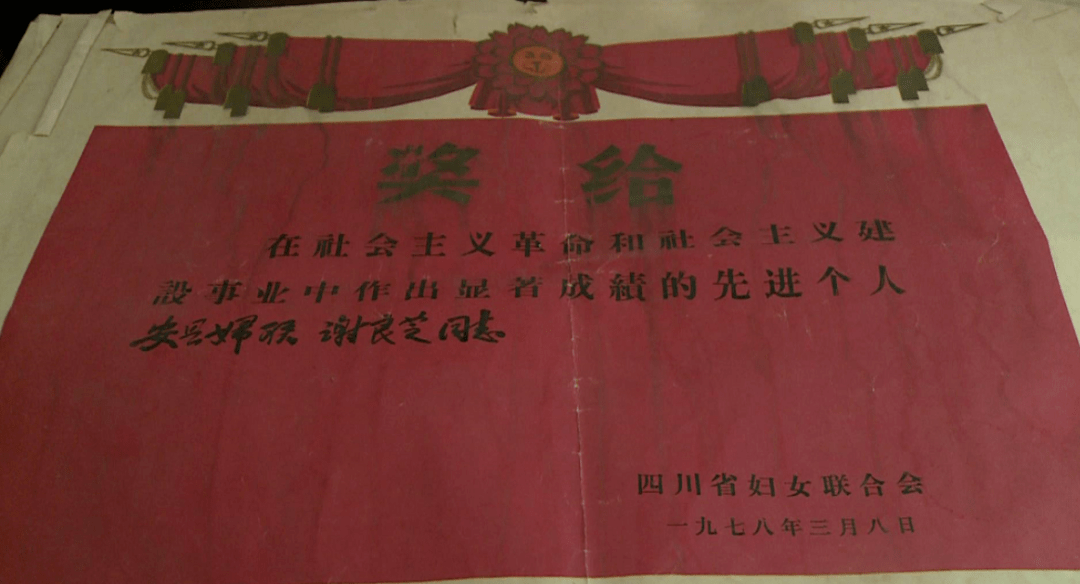 奖给
在社会主义革命和社会主义建
設事业中作出显著成績的先进个人
安县婦联 谢良芝同志
四川省妇女联合会
一九七八年三月八日